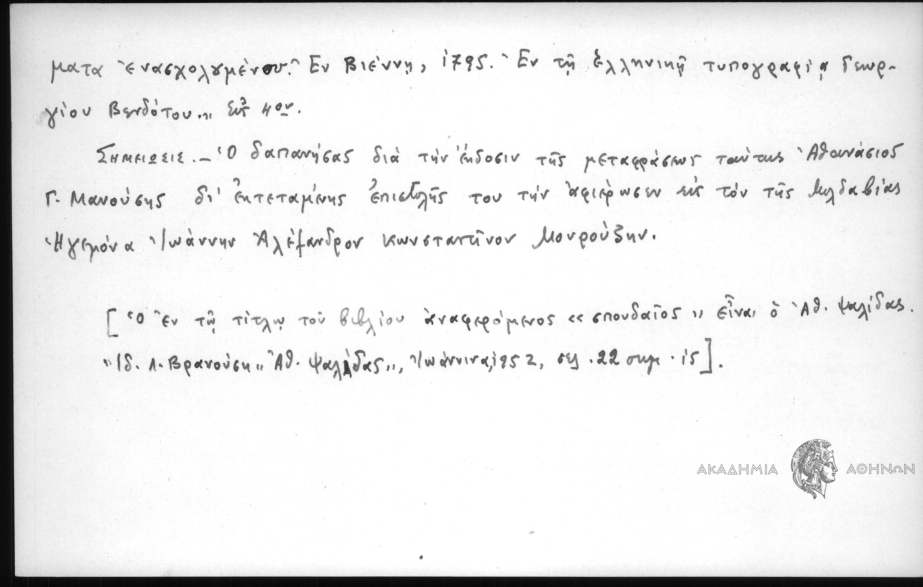 ματα ἐνασχολουμένου. Ἐν Βιέννῃ, 1795. Ἐν τῇ ἑλληνικῇ τυπογραφίᾳ Γεωρ-
γίου Βενδότου.,, Εἰς 4ον.
Σημειωσεις. – Ὁ δαπανήσας διὰ τὴν ἔκδοσιν τῆς μεταφράσεως ταύτης Ἀθανάσιος
Γ. Μανούσης δι' ἐκτεταμένης ἐπιστολῆς του τὴν ἀφιέρωσεν εἰς τὸν τῆς Μολδαβίας
Ἡγεμόνα Ἰωάννην Ἀλέξανδρον Κωνσταντῖνον Μουρούζην.
[ Ὁ ἐν τῷ τίτλῳ τοῦ βιβλίου ἀναφερόμενος «σπουδαῖος» εἶναι ὁ Ἀθ. Ψαλίδας.
Ἰδ. Λ. Βρανούση ,,Ἀθ. Ψαλίδας,,, Ἰωάννινα, 1952, σελ. 22 σημ. 15].
ΑΚΑΔΗΜΙΑ ΑΘΗΝΩΝ